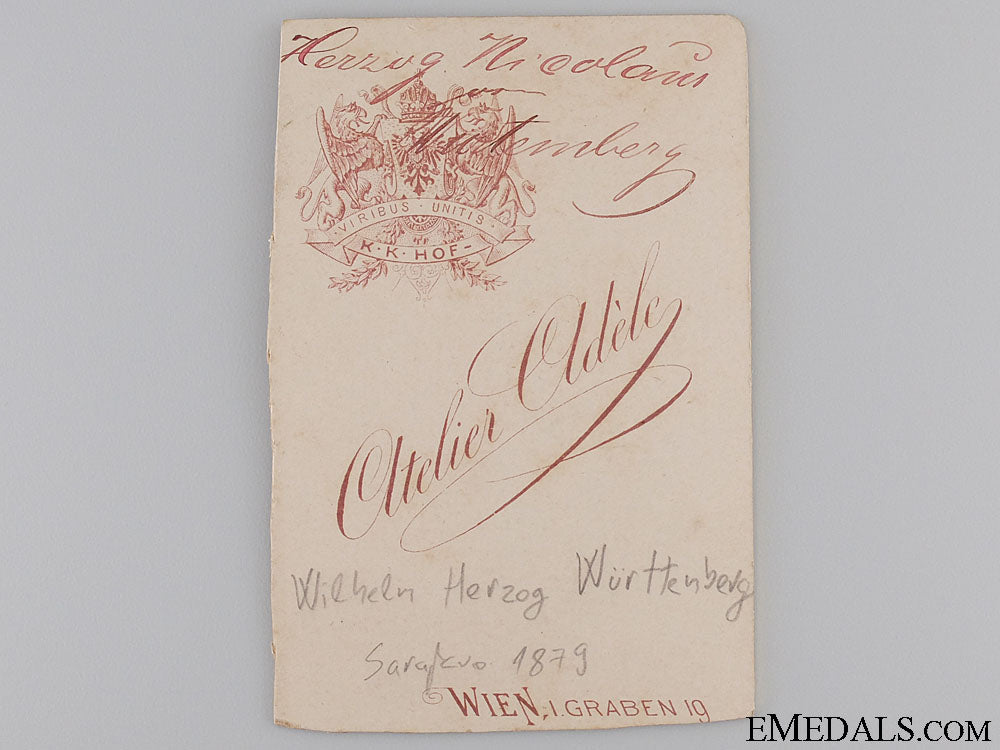 Herzog Nicolaus
von
Würtemberg
VIRIBUS · UNITIS
K · K · HOF-
Atelier Adèle
Wilhelm Herzog Württenberg
Sarajevo 1879
WIEN, I. GRABEN 19
EMEDALS.COM